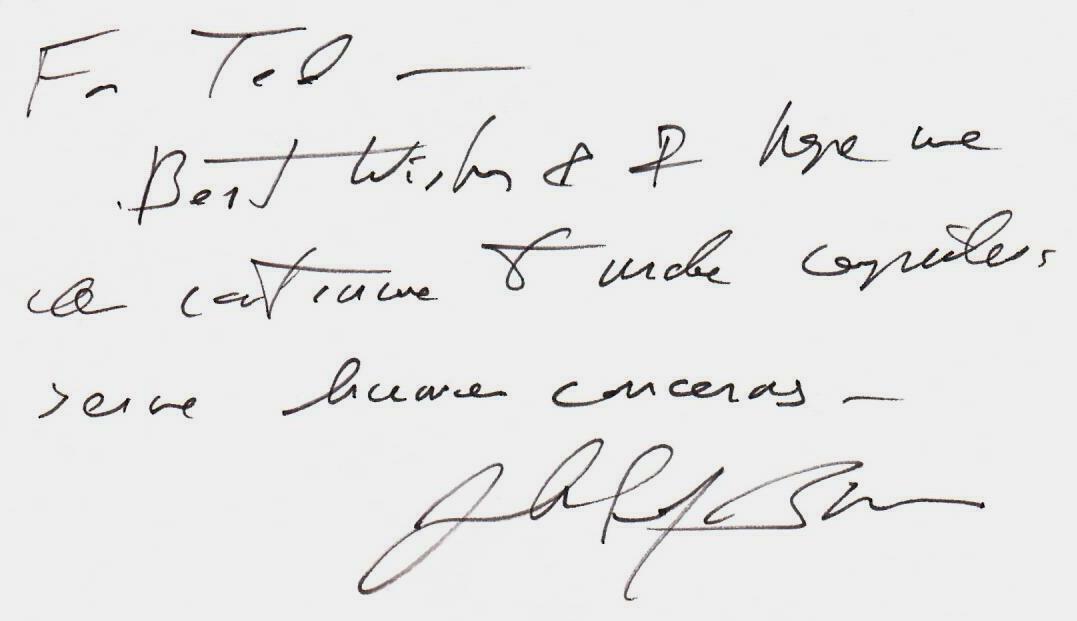 For Ted —
Best Wishes & I hope we
can continue to make computers
serve human concerns —